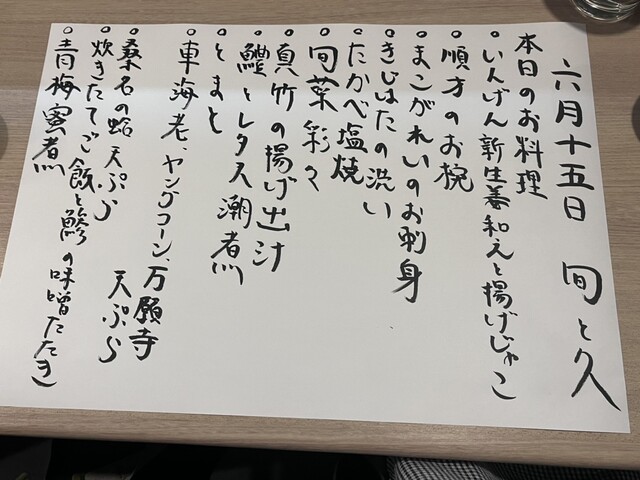 六月十五日 旬と久
本日のお料理
○いんげん新生姜和えと揚げじゃこ
○順才のお椀
○まこがれいのお刺身
○きじはたの洗い
○たかべ塩焼
○旬菜彩々
○真竹の揚げ出汁
○鱧とレタス潮煮
○とまと
○車海老、ヤングコーン、万願寺
天ぷら
○桑名の蛤天ぷら
○炊きたてご飯と鯵の味噌たたき
○青梅蜜煮